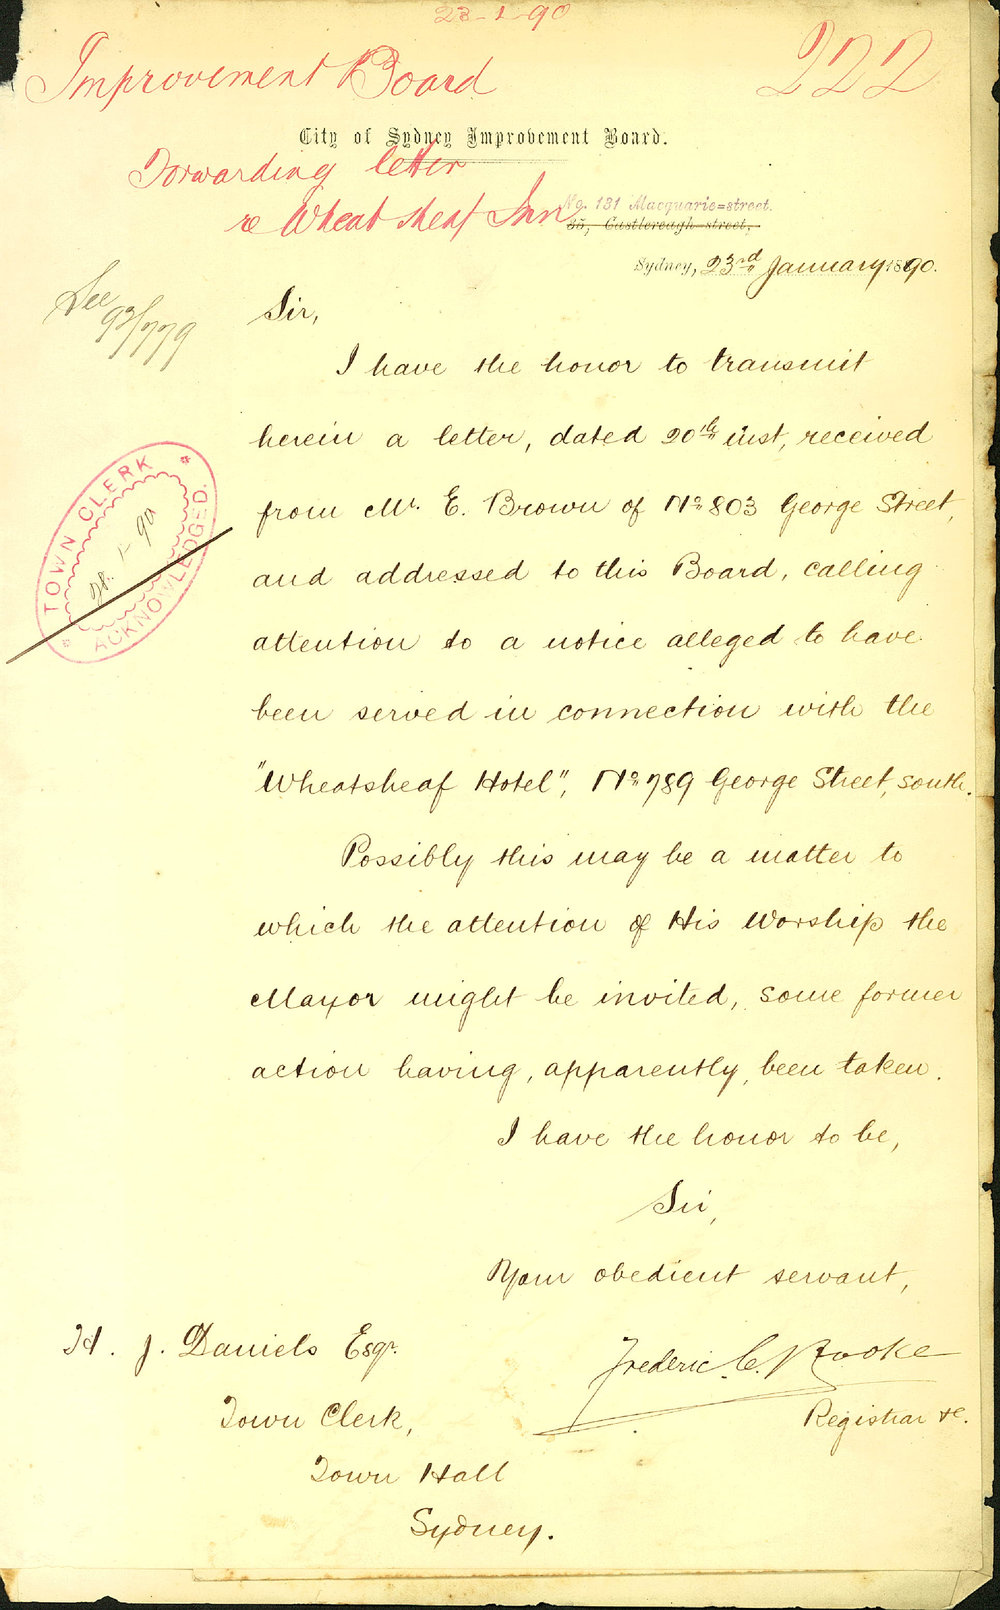 23-1-90
Improvement Board
222
City of Sydney Improvement Board.
Forwarding letter
re Wheat sheaf Inn
No. 131 Macquarie=street.
35, Castlereagh=street,
Sydney, 23rd January 1890.
See
93/779
Sir,
I have the honor to transmit
herein a letter, dated 20th inst, received
from Mr. E. Brown of No 803 George Street,
and addressed to this Board, calling
attention to a notice alleged to have
been served in connection with the
"Wheatsheaf Hotel", No 789 George Street, South.
TOWN CLERK
28.1.90
ACKNOWLEDGED.
Possibly this may be a matter to
which the attention of His Worship the
Mayor might be invited, some former
action having, apparently, been taken.
I have the honor to be,
Sir,
Your obedient servant,
Frederic C. Rooke
Registrar &c.
H. J. Daniels Esqr.
Town Clerk,
Town Hall
Sydney.